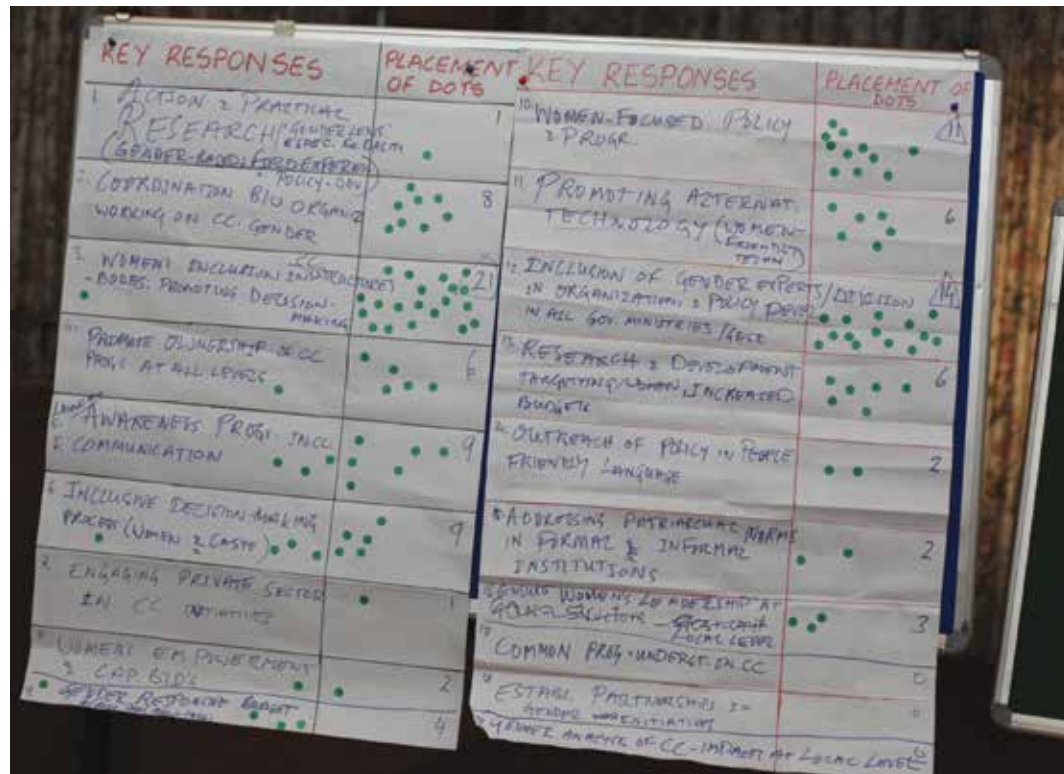 KEY RESPONSES
PLACEMENT
OF DOTS
1. ACTION & PRACTICAL
RESEARCH/ GENDER LENS
(GENDER-BASED
POLICY-
1
2. COORDINATION B/W ORGANIZ
WORKING ON CC. GENDER
8
3. WOMEN'S INCLUSION IN CC STRUCTURES
- BODIES. PROMOTING DECISION-
MAKING
21
4. PROMOTE OWNERSHIP OF CC
PROG. AT ALL LEVELS
6
5. AWARENESS PROG. IN CC
& COMMUNICATION
9
6. INCLUSIVE DECISION-MAKING
PROCESS (WOMEN & CASTE)
9
7. ENGAGING PRIVATE SECTOR
IN CC INITIATIVES
1
8. WOMEN'S EMPOWERMENT
& CAP BLD'G
2
9. GENDER RESPONSIVE BUDGET
4
KEY RESPONSES
PLACEMENT OF
DOTS
10. WOMEN-FOCUSED POLICY
& PROGR.
11
11. PROMOTING ALTERNAT.
TECHNOLOGY (WOMEN-
FRIENDLY
6
12. INCLUSION OF GENDER EXPERTS/DIVISION
IN ORGANIZATIONS & POLICY DEVEL
IN ALL GOV. MINISTRIES/
14
13. RESEARCH & DEVELOPMENT
TARGETING INCREASED
BUDGETS
6
OUTREACH OF POLICY IN PEOPLE
FRIENDLY LANGUAGE
2
ADDRESSING PATRIARCHAL NORMS
IN FORMAL & INFORMAL
INSTITUTIONS
2
WOMEN'S LEADERSHIP AT
LOCAL LEVEL
3
COMMON PROG. UNDERST. ON CC
0
ESTABL PARTNERSHIPS IN
GENDER
GENDER ANALYSIS OF CC-IMPACT AT LOCAL LEVEL